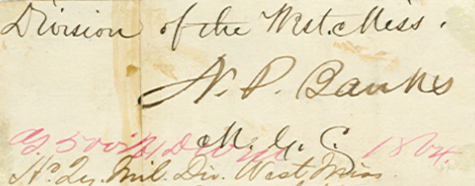 Division of the West. Miss.
N. P. Banks
M. G. C.
1864.
Hd. Qr. Mil. Div. West Miss.